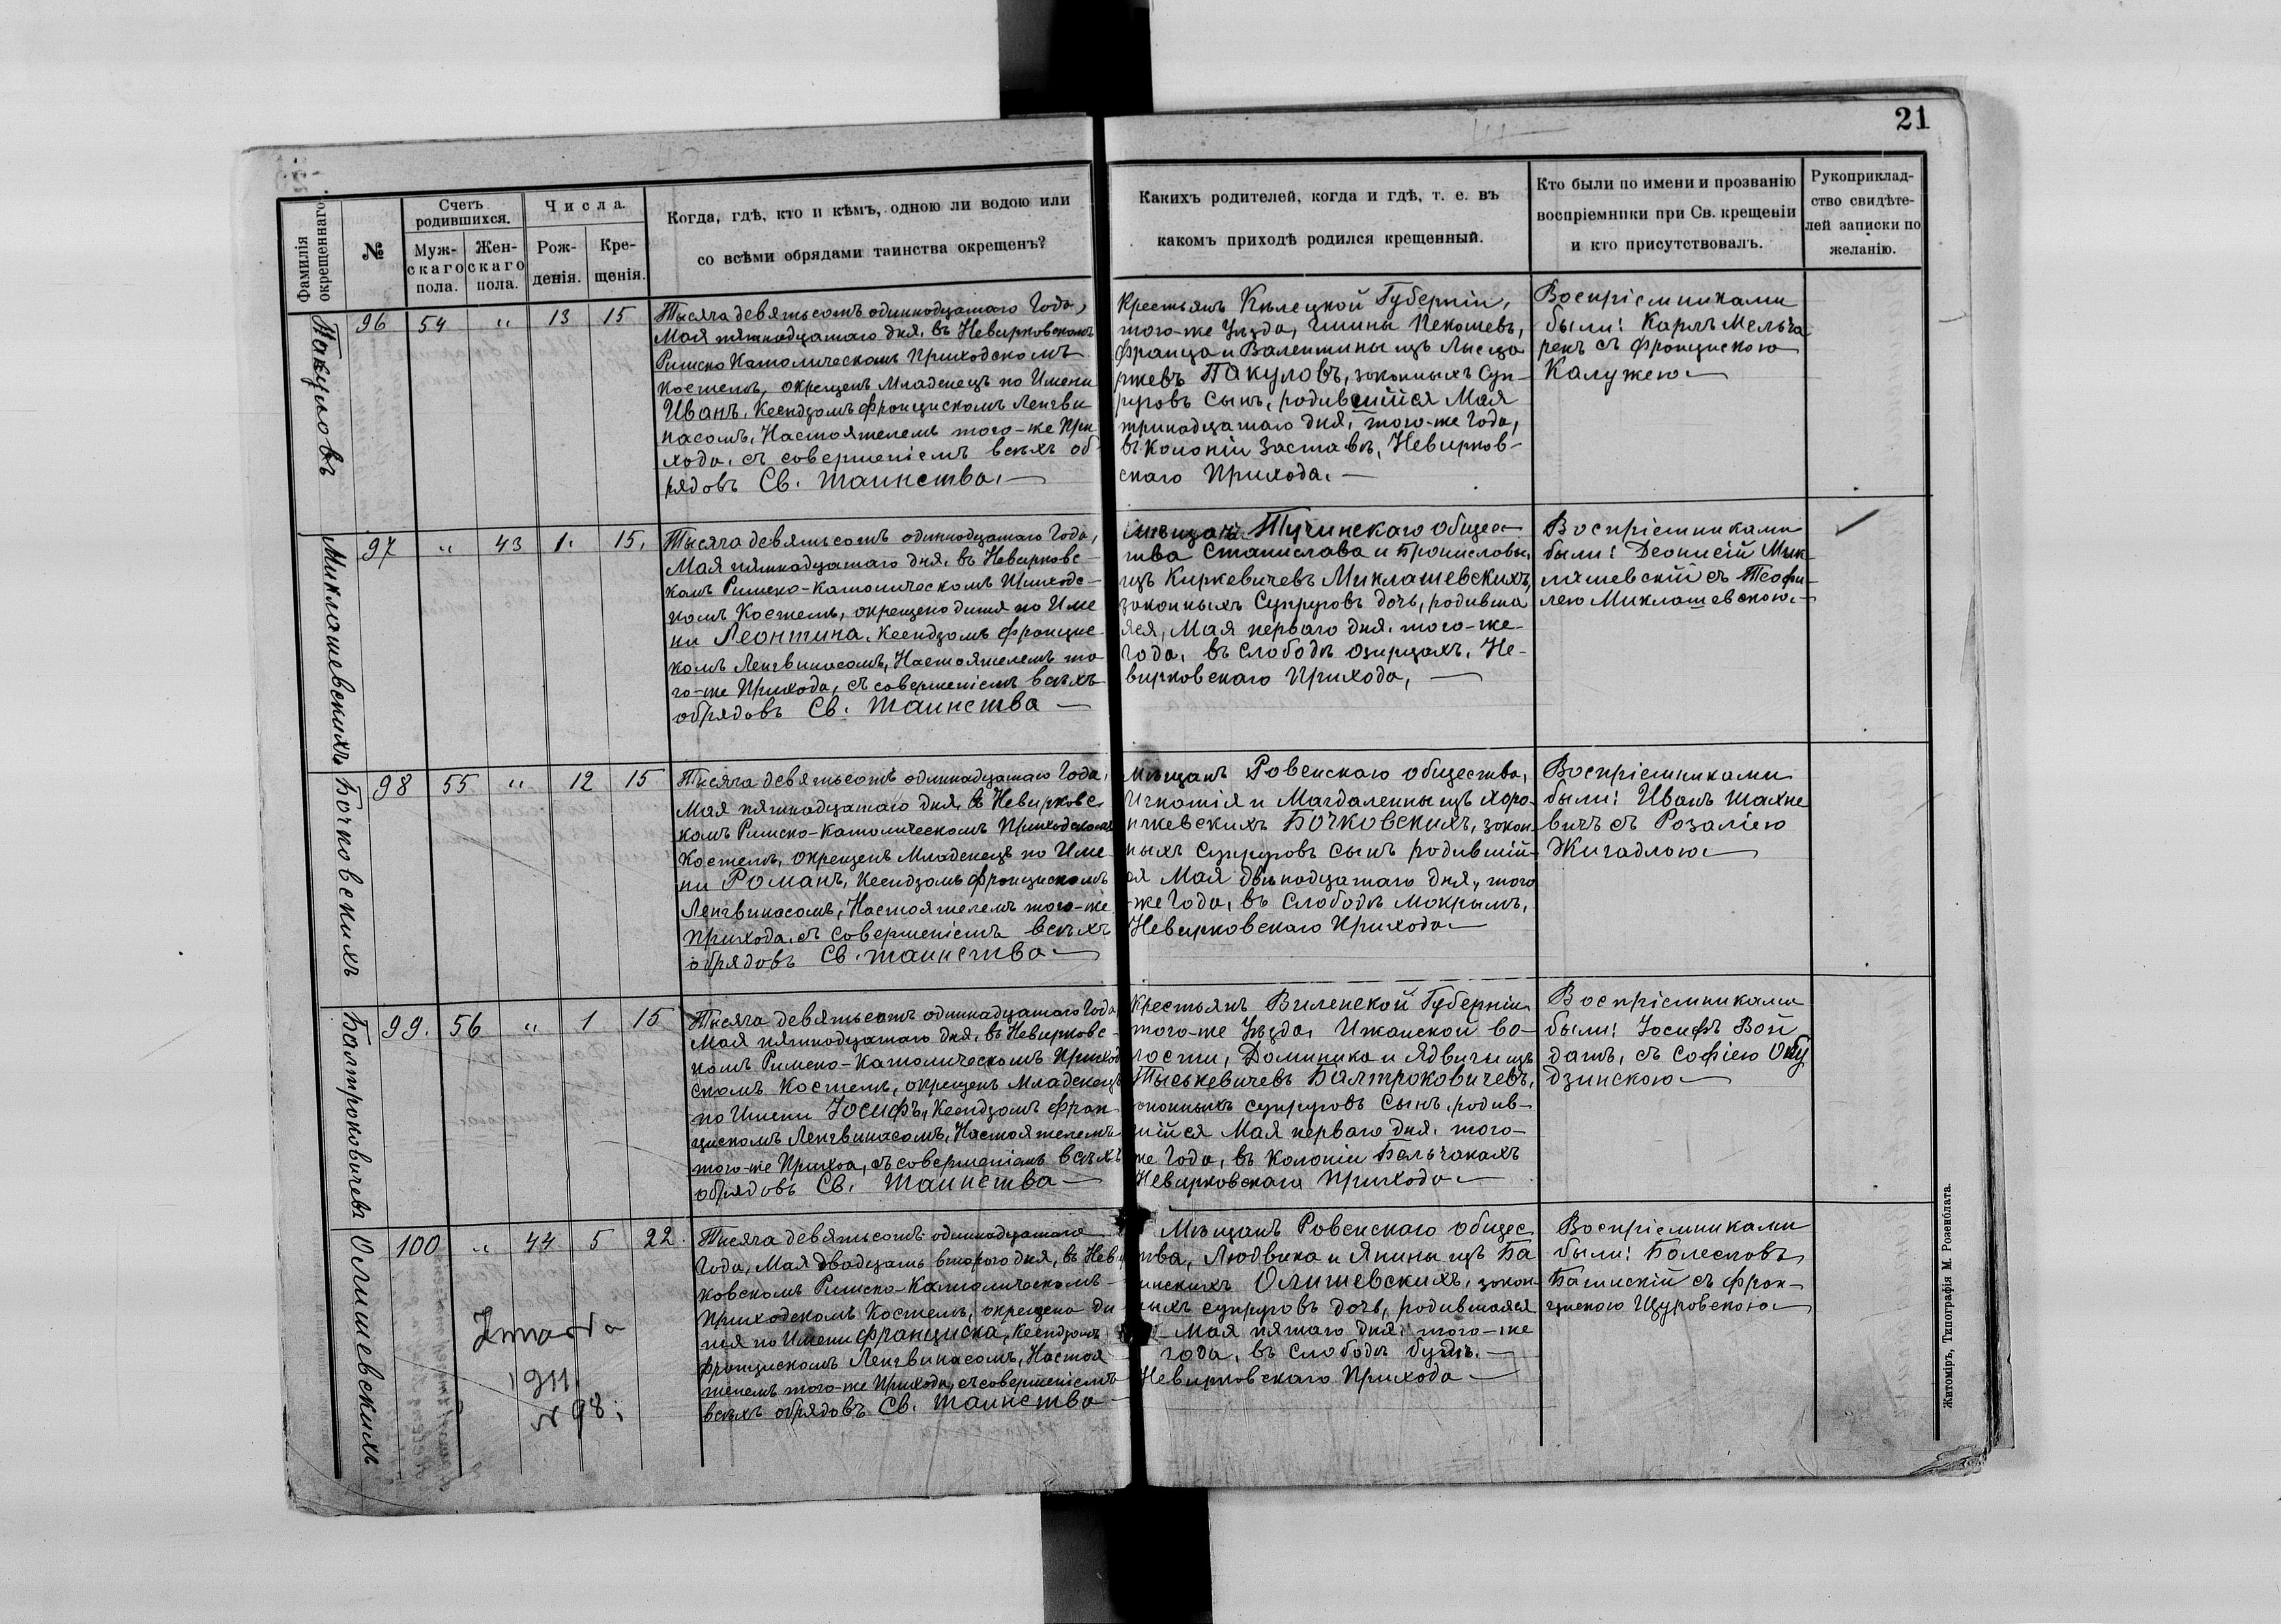 21
Фамилія окрещеннаго.
№
Счетъ родившихся.
Муж-скаго пола.
Жен-скаго пола.
Числа.
Рож-денія.
Кре-щенія.
Когда, гдѣ, кто и кѣмъ, одною ли водою или
со всѣми обрядами таинства окрещенъ?
Какихъ родителей, когда и гдѣ, т. е. въ
какомъ приходѣ родился крещенный.
Кто были по имени и прозванію
воспріемники при Св. крещеніи
и кто присутствовалъ.
Рукоприклад-
ство свидѣте-
лей записки по
желанію.
Пакуловъ
96 54 " 13 15
Тысяча девятьсотъ одиннодцатаго Года,
Мая пятнодцатаго дня, въ Невирковскомъ
Римско Католическомъ Приходскомъ
Костелѣ, окрещенъ Младенецъ по Имени
Иванъ, Ксендзомъ Францискомъ Ленгви
насомъ, Настоятелемъ того-же При
хода, съ совершеніемъ всѣхъ об-
рядовъ Св. Таинства.
Крестьянъ Кѣлецкой Губерніи,
того-же Уѣзда, Гмины Пекошевъ,
Франца и Валентины изъ Лысца
ржевъ Пакуловъ, законныхъ Суп-
руговъ Сынъ, родившійся Мая
тринадцатаго дня, того-же Года,
въ Колоніи Заставѣ, Невирков-
скаго Прихода.
Воспріемниками
были: Карлъ Мельча
рекъ съ Францискою
Калужею
Миклашевскихъ
97 " 43 1. 15.
Тысяча девятьсотъ одиннодцатаго Года,
Мая пятнадцатаго дня, въ Невирковс-
комъ Римско-Католическомъ Приходс-
комъ Костелѣ, окрещено дитя по Име
ни Леонтина, Ксендзомъ Францис-
комъ Ленгвинасомъ, Настоятелемъ то-
го-же Прихода, съ совершеніемъ всѣхъ
обрядовъ Св. Таинства
Мѣщанъ Тучинскаго общес-
тва Станислава и Брониславы,
изъ Киркевичевъ Миклашевскихъ,
законныхъ Супруговъ дочь, родивша
яся, Мая перваго дня, того-же-
Года, въ Слободѣ Озирцахъ, Не-
вирковскаго Прихода,
Воспріемниками
были: Деонисій Мик-
ляшевскій съ Теофи-
лею Миклашевскою.
Бочковскихъ
98 55 " 12 15
Тысяча девятьсотъ одиннадцатаго Года,
Мая пятнадцатаго дня, въ Невирковс-
комъ Римско-Католическомъ Приходскомъ
Костелѣ, окрещенъ Младенецъ по Име-
ни Романъ, Ксендзомъ Францискомъ
Ленгвинасомъ, Настоятелемъ того-же
Прихода, съ совершеніемъ всѣхъ
обрядовъ Св. таинства
Мѣщанъ Ровенскаго общества,
Игнатія и Магдалены изъ Хоро-
нжевскихъ Бочковскихъ, закон-
ныхъ супруговъ сынъ родившій-
ся Мая двѣнодцатаго дня, того
-же Года, въ Слободѣ Мокрымъ,
Невирковскаго Прихода
Воспріемниками
были: Иванъ Махне
вичъ съ Розаліею
Жигадлою
Балтроковичевъ
99. 56 " 1 15
Тысяча девятьсотъ одиннадцатаго Года
Мая пятнодцатаго дня, въ Невирковс-
комъ Римско-Католическомъ Приход
скомъ Костелѣ, окрещенъ Младенецъ
по Имени Іосифъ, Ксендзомъ Фран-
цискомъ Ленгвинасомъ, Настоятелемъ
того-же Прихоа, съ совершеніемъ всѣхъ
обрядовъ Св. Таинства
Крестьянъ Виленской Губерніи
того-же Уѣзда, Ижанской во-
лости, Доминика и Ядвиги изъ
Тыськевичевъ Балтроковичевъ,
законныхъ супруговъ Сынъ, родив-
шійся Мая перваго дня, того-
же Года, въ Колоніи Бельчакахъ
Невирковскаго Прихода
Воспріемниками
были: Іосифъ Вой
датъ, съ Софіею
дзинскою
Олишевскихъ
100 " 44 5 22.
Тысяча девятьсотъ одиннадцатаго
Года, Мая двадцать второго дня, въ Невир
ковскомъ Римско-Католическомъ-
Приходскомъ Костелѣ, окрещено ди
тя по Имени Франциска, Ксендзомъ
Францискомъ Ленгвинасомъ, Настоя
телемъ того-же Прихода, съ совершеніемъ
всѣхъ обрядовъ Св. Таинства
Мѣщанъ Ровенскаго общес
тва, Людвика и Янины изъ Ба
гинскихъ Олишевскихъ, закон-
ныхъ супруговъ дочь, родившаяся
Мая пятаго дня, того-же
года, въ слободѣ Будкѣ.
Невирковскаго Прихода
Воспріемниками
были: Болеславъ
Багинскій съ Фран-
цискою Щуровскою
1911.
N 98.
Житоміръ, Типографія М. Розенблата.